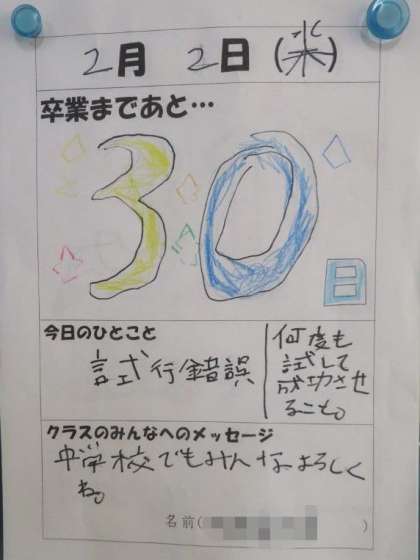 2月 2日(水)
卒業まであと…
30
日
今日のひとこと
試行錯誤
何度も
試して
成功させ
ること。
クラスのみんなへのメッセージ
中学校でもみんなよろしく
ね。
名前( )